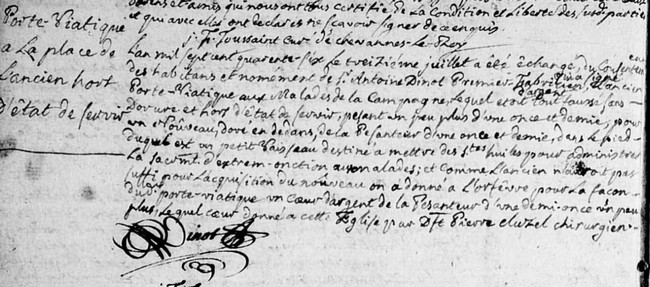 parens et amis qui nous ont tous certifie de la Condition et Liberté des susd. parties
et qui avec elles ont declarés ne scavoir signer de ce enquis
j. F. Toussaint Cur. de chevannes-le-Roy
Porte-Viatique
a La place de
L'ancien hort
d'état de servir
L'an mil sept cent quarente-six Le treizième juillet a été échangé du Consentem
des habitans et nomement de Sr. Antoine Dinot Premier fabricien L'ancien
Porte-Viatique aux Malades de la Campagne, Lequel etoit tout fausse sans
Dorure et hort d'état de servir, pesant un peu plus d'une once et demie, pour
un Nouveau, doré en dédans, de la Pesanteur d'une once et demie, dans le pied
duquel est un petit Vaisseau destiné a mettre des stes huiles pour administrer
La sacremt d'extrem-onction aux malades; et comme L'ancien n'auroit pas
suffi pour L'acquisition du nouveau on a donné a L'orfèvre pour La façon
du d. porte-viatique un Cœur d'argent de la Pesanteur d'une demi-once un peu
plus, Lequel cœur donné a cette Eglise par Dft Pierre cluzel chirurgien
Dinot